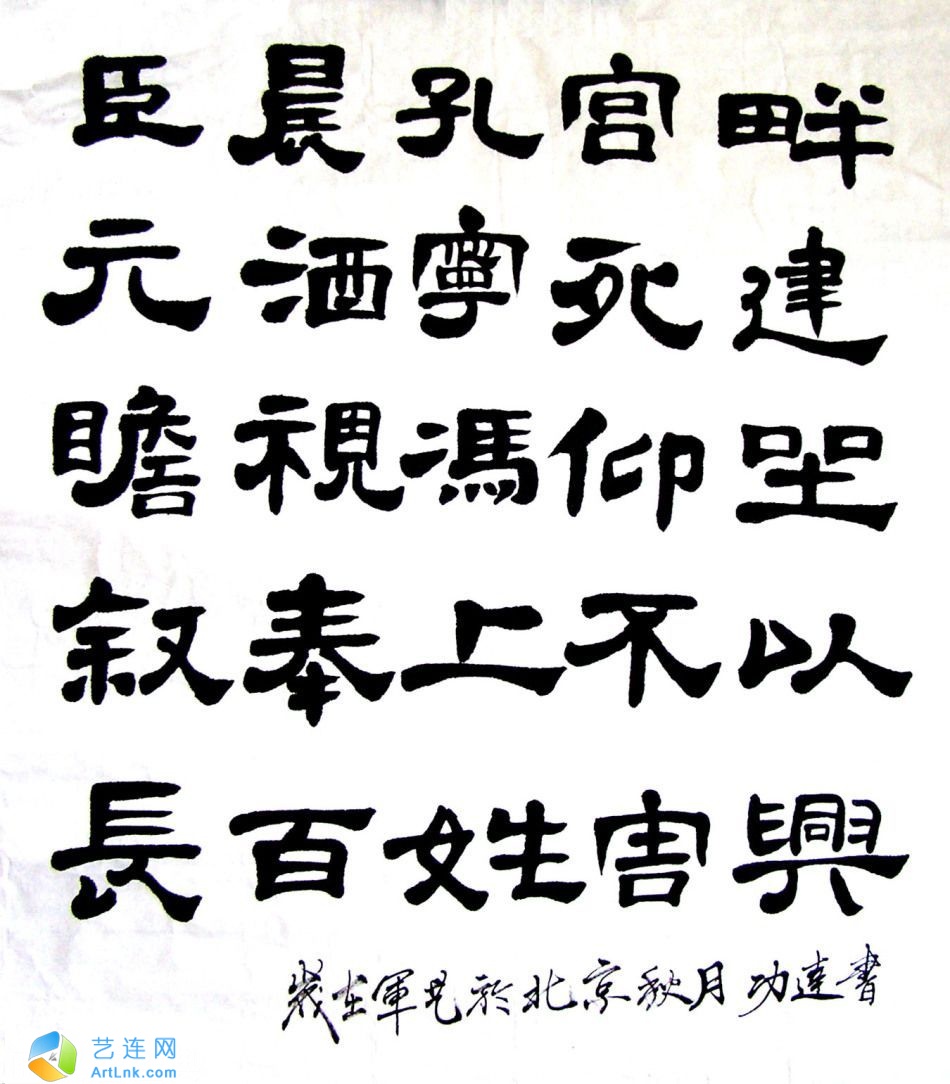 畔建坐以興
宮死仰不害
孔寧馮上姓
晨洒視奉百
臣元瞻叙長
歲在於北京秋月功達書
艺连网
ArtLnk.com